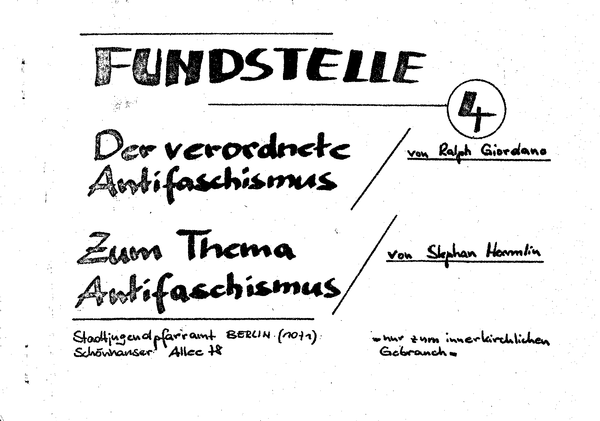 FUNDSTELLE
4
Der verordnete
Antifaschismus
von Ralph Giordano
Zum Thema
Antifaschismus
von Stephan Hermlin
Stadtjugendpfarramt BERLIN (1071)
Schönhauser Allee 78
-nur zum innerkirchlichen
Gebrauch-